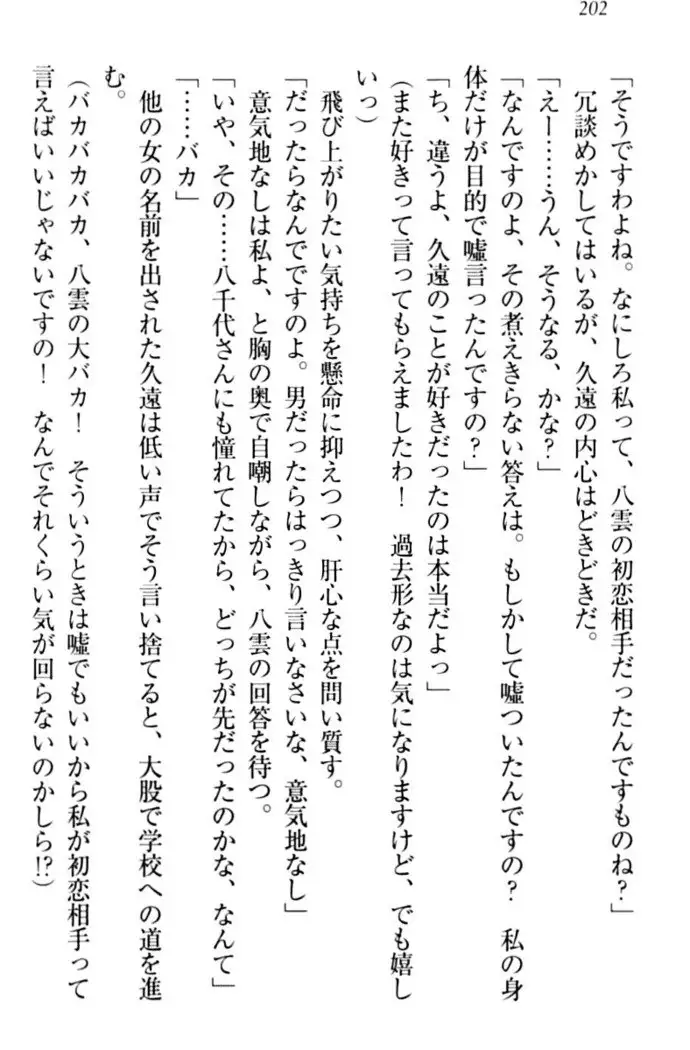 202
「そうですわよね。なにしろ私って、八雲の初恋相手だったんですものね?」
冗談めかしてはいるが、久遠の内心はどきどきだ。
「えー……うん、そうなる、かな?」
「なんですのよ、その煮えきらない答えは。もしかして嘘ついたんですの? 私の身
体だけが目的で嘘言ったんですの?」
「ち、違うよ、久遠のことが好きだったのは本当だよっ」
(また好きって言ってもらえましたわ! 過去形なのは気になりますけど、でも嬉し
いっ)
飛び上がりたい気持ちを懸命に抑えつつ、肝心な点を問い質す。
「だったらなんでですのよ。男だったらはっきり言いなさいな、意気地なし」
意気地なしは私よ、と胸の奥で自嘲しながら、八雲の回答を待つ。
「いや、その……八千代さんにも憧れてたから、どっちが先だったのかな、なんて」
「……バカ」
他の女の名前を出された久遠は低い声でそう言い捨てると、大股で学校への道を進
む。
(バカバカバカ、八雲の大バカ! そういうときは嘘でもいいから私が初恋相手って
言えばいいじゃないですの! なんでそれくらい気が回らないのかしら!?)